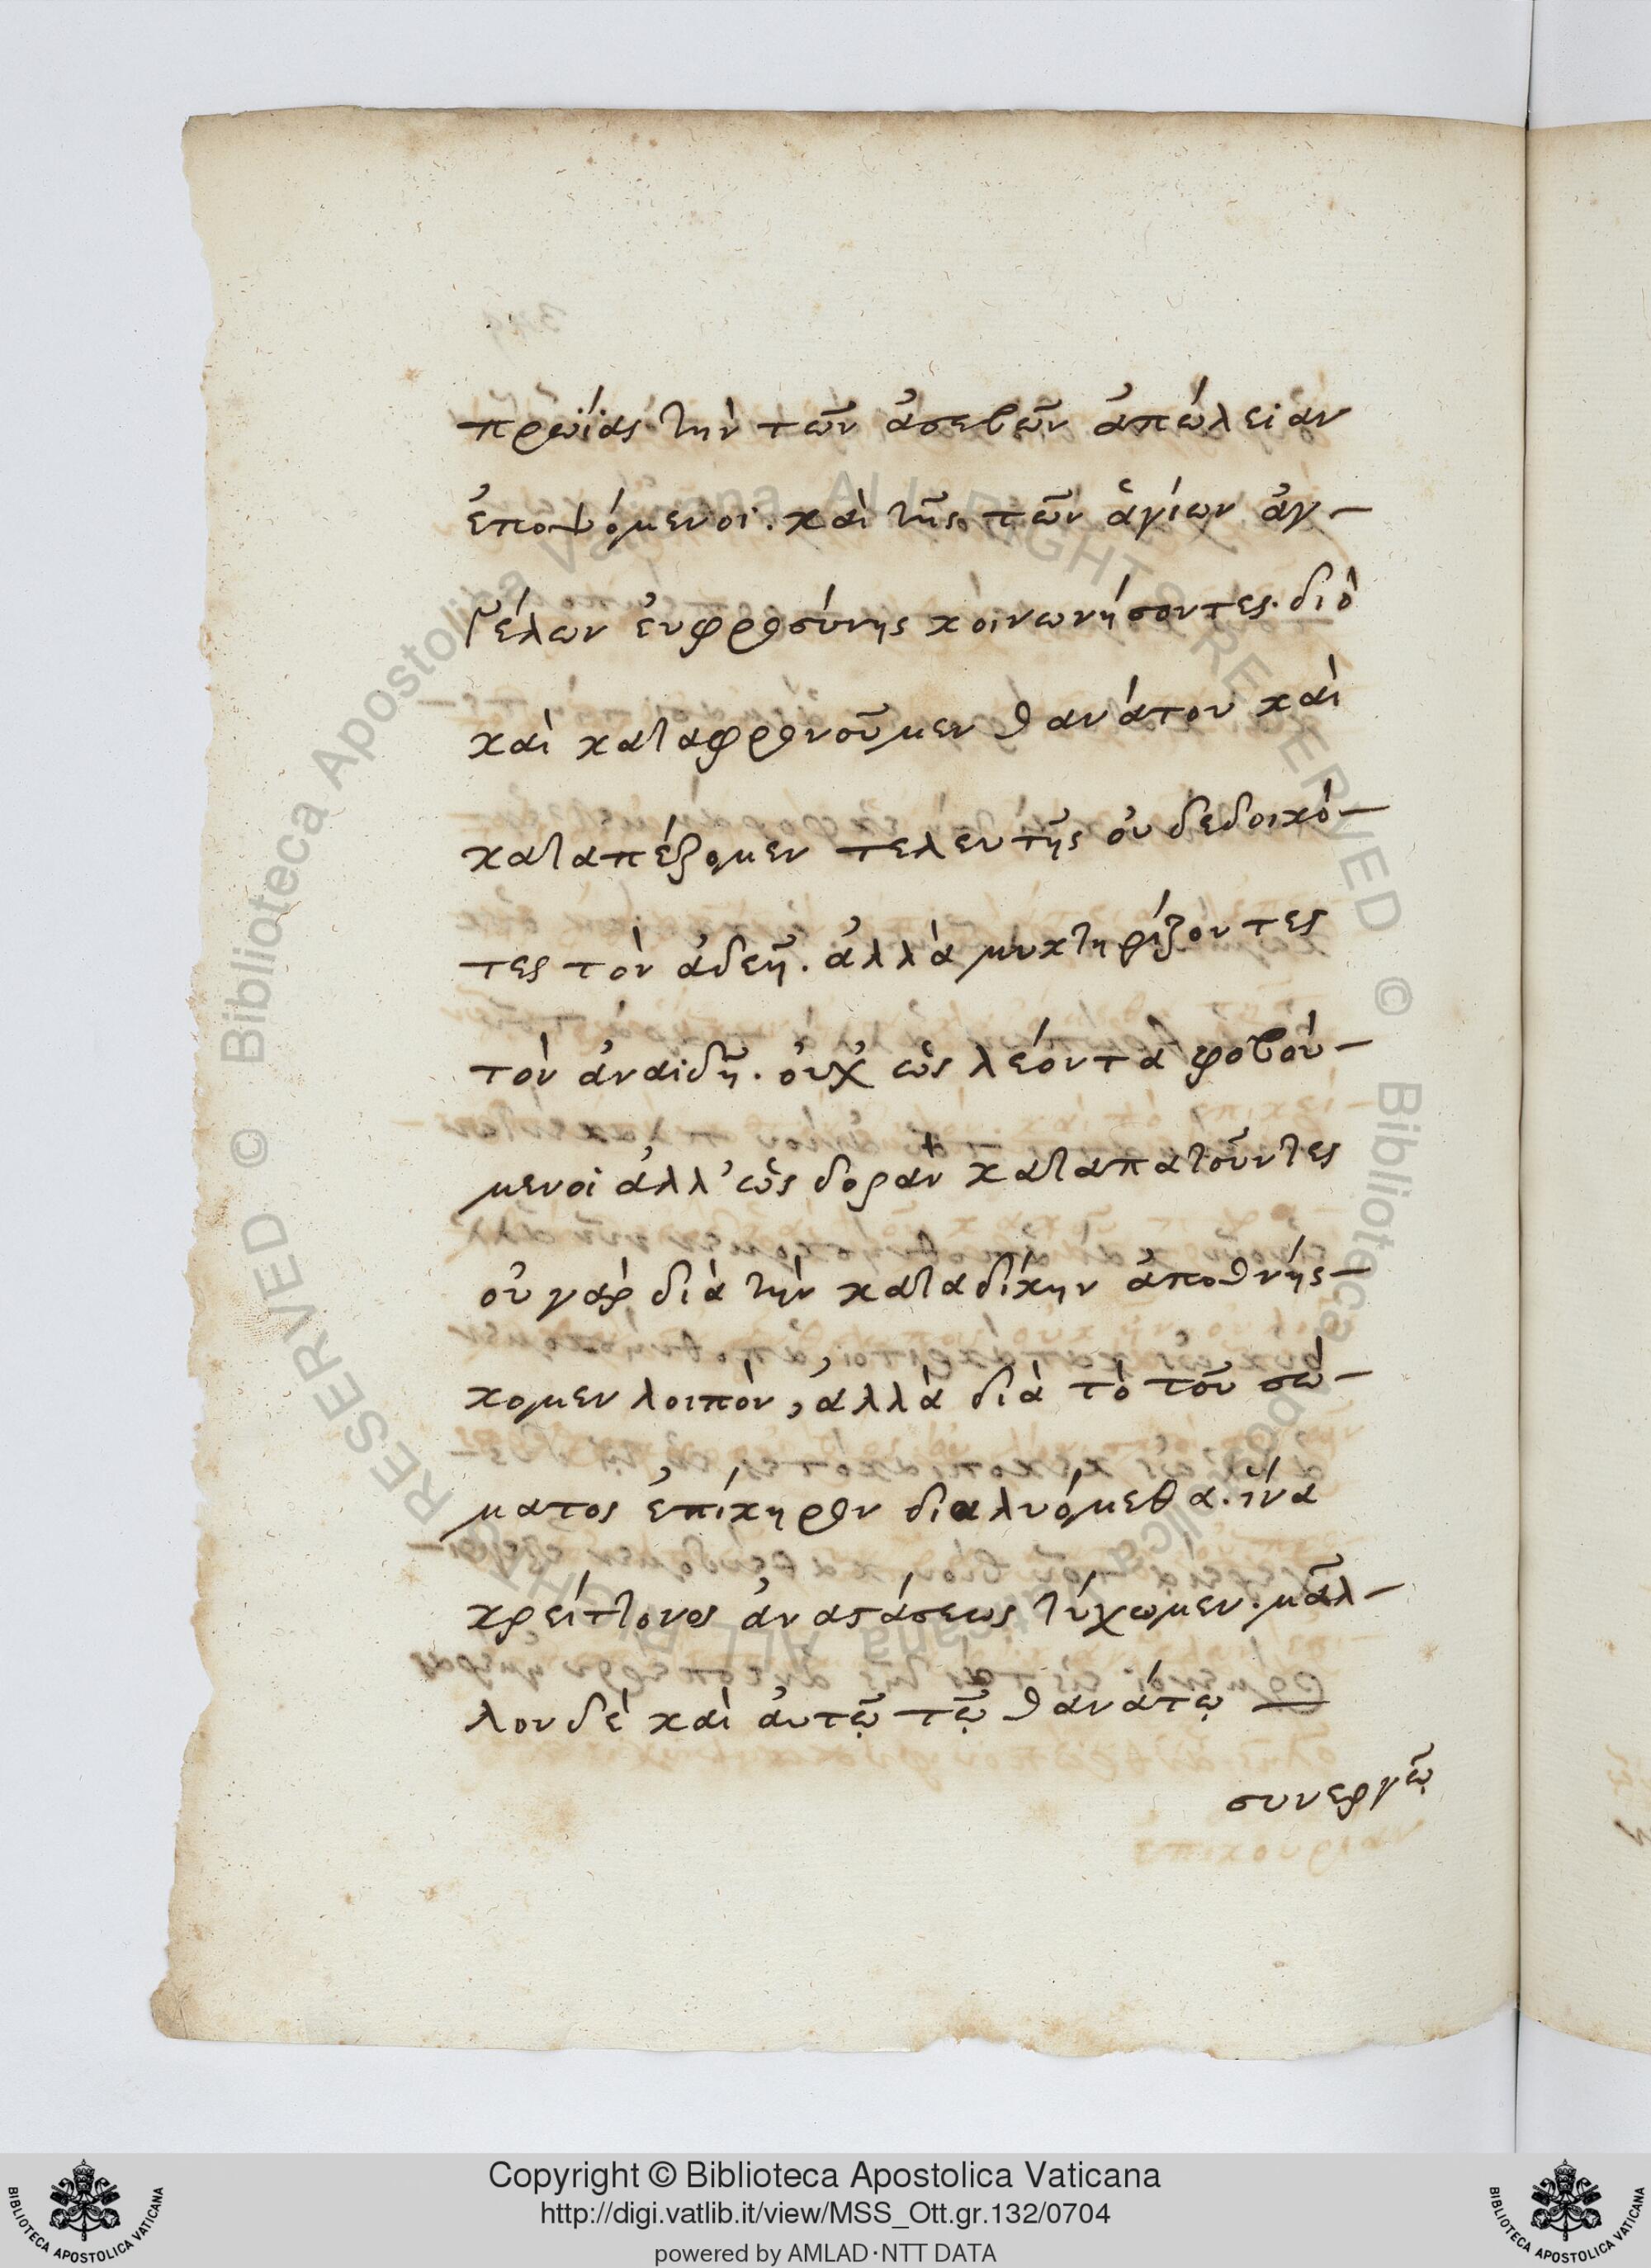 πρωΐας τὴν τῶν ἀσεβῶν ἀπώλειαν
ἐποψόμενοι. καὶ τῆς τῶν ἁγίων ἀγ-
γέλων ἐυφροσύνης κοινωνήσοντες. διὸ
καὶ καταφρονοῦμεν θανάτου καὶ
καταπέζομεν τελευτῆς οὐ δεδοικό-
τες τὸν ἀδεῆ. ἀλλὰ μυκτηρίζοντες
τὸν ἀναιδῆ. οὐχ ὡς λέοντα φοβού-
μενοι ἀλλ' ὡς δορὰν καταπατοῦντες
οὐ γὰρ διὰ τὴν καταδίκην ἀποθνής-
κομεν λοιπὸν, ἀλλὰ διὰ τὸ τοῦ σώ-
ματος ἐπίκηρον διαλυόμεθα. ἵνα
κρείττονος ἀναστάσεως τύχωμεν. μᾶλ-
λον δὲ καὶ ἀυτῷ τῷ θανάτῳ
συνεργῷ
Copyright © Biblioteca Apostolica Vaticana
http://digi.vatlib.it/view/MSS_Ott.gr.132/0704
powered by AMLAD·NTT DATA
BIBLIOTECA APOSTOLICA VATICANA
BIBLIOTECA APOSTOLICA VATICANA
© Biblioteca Apostolica Vaticana ALL RIGHTS RESERVED
© Biblioteca Apostolica Vaticana ALL RIGHTS RESERVED